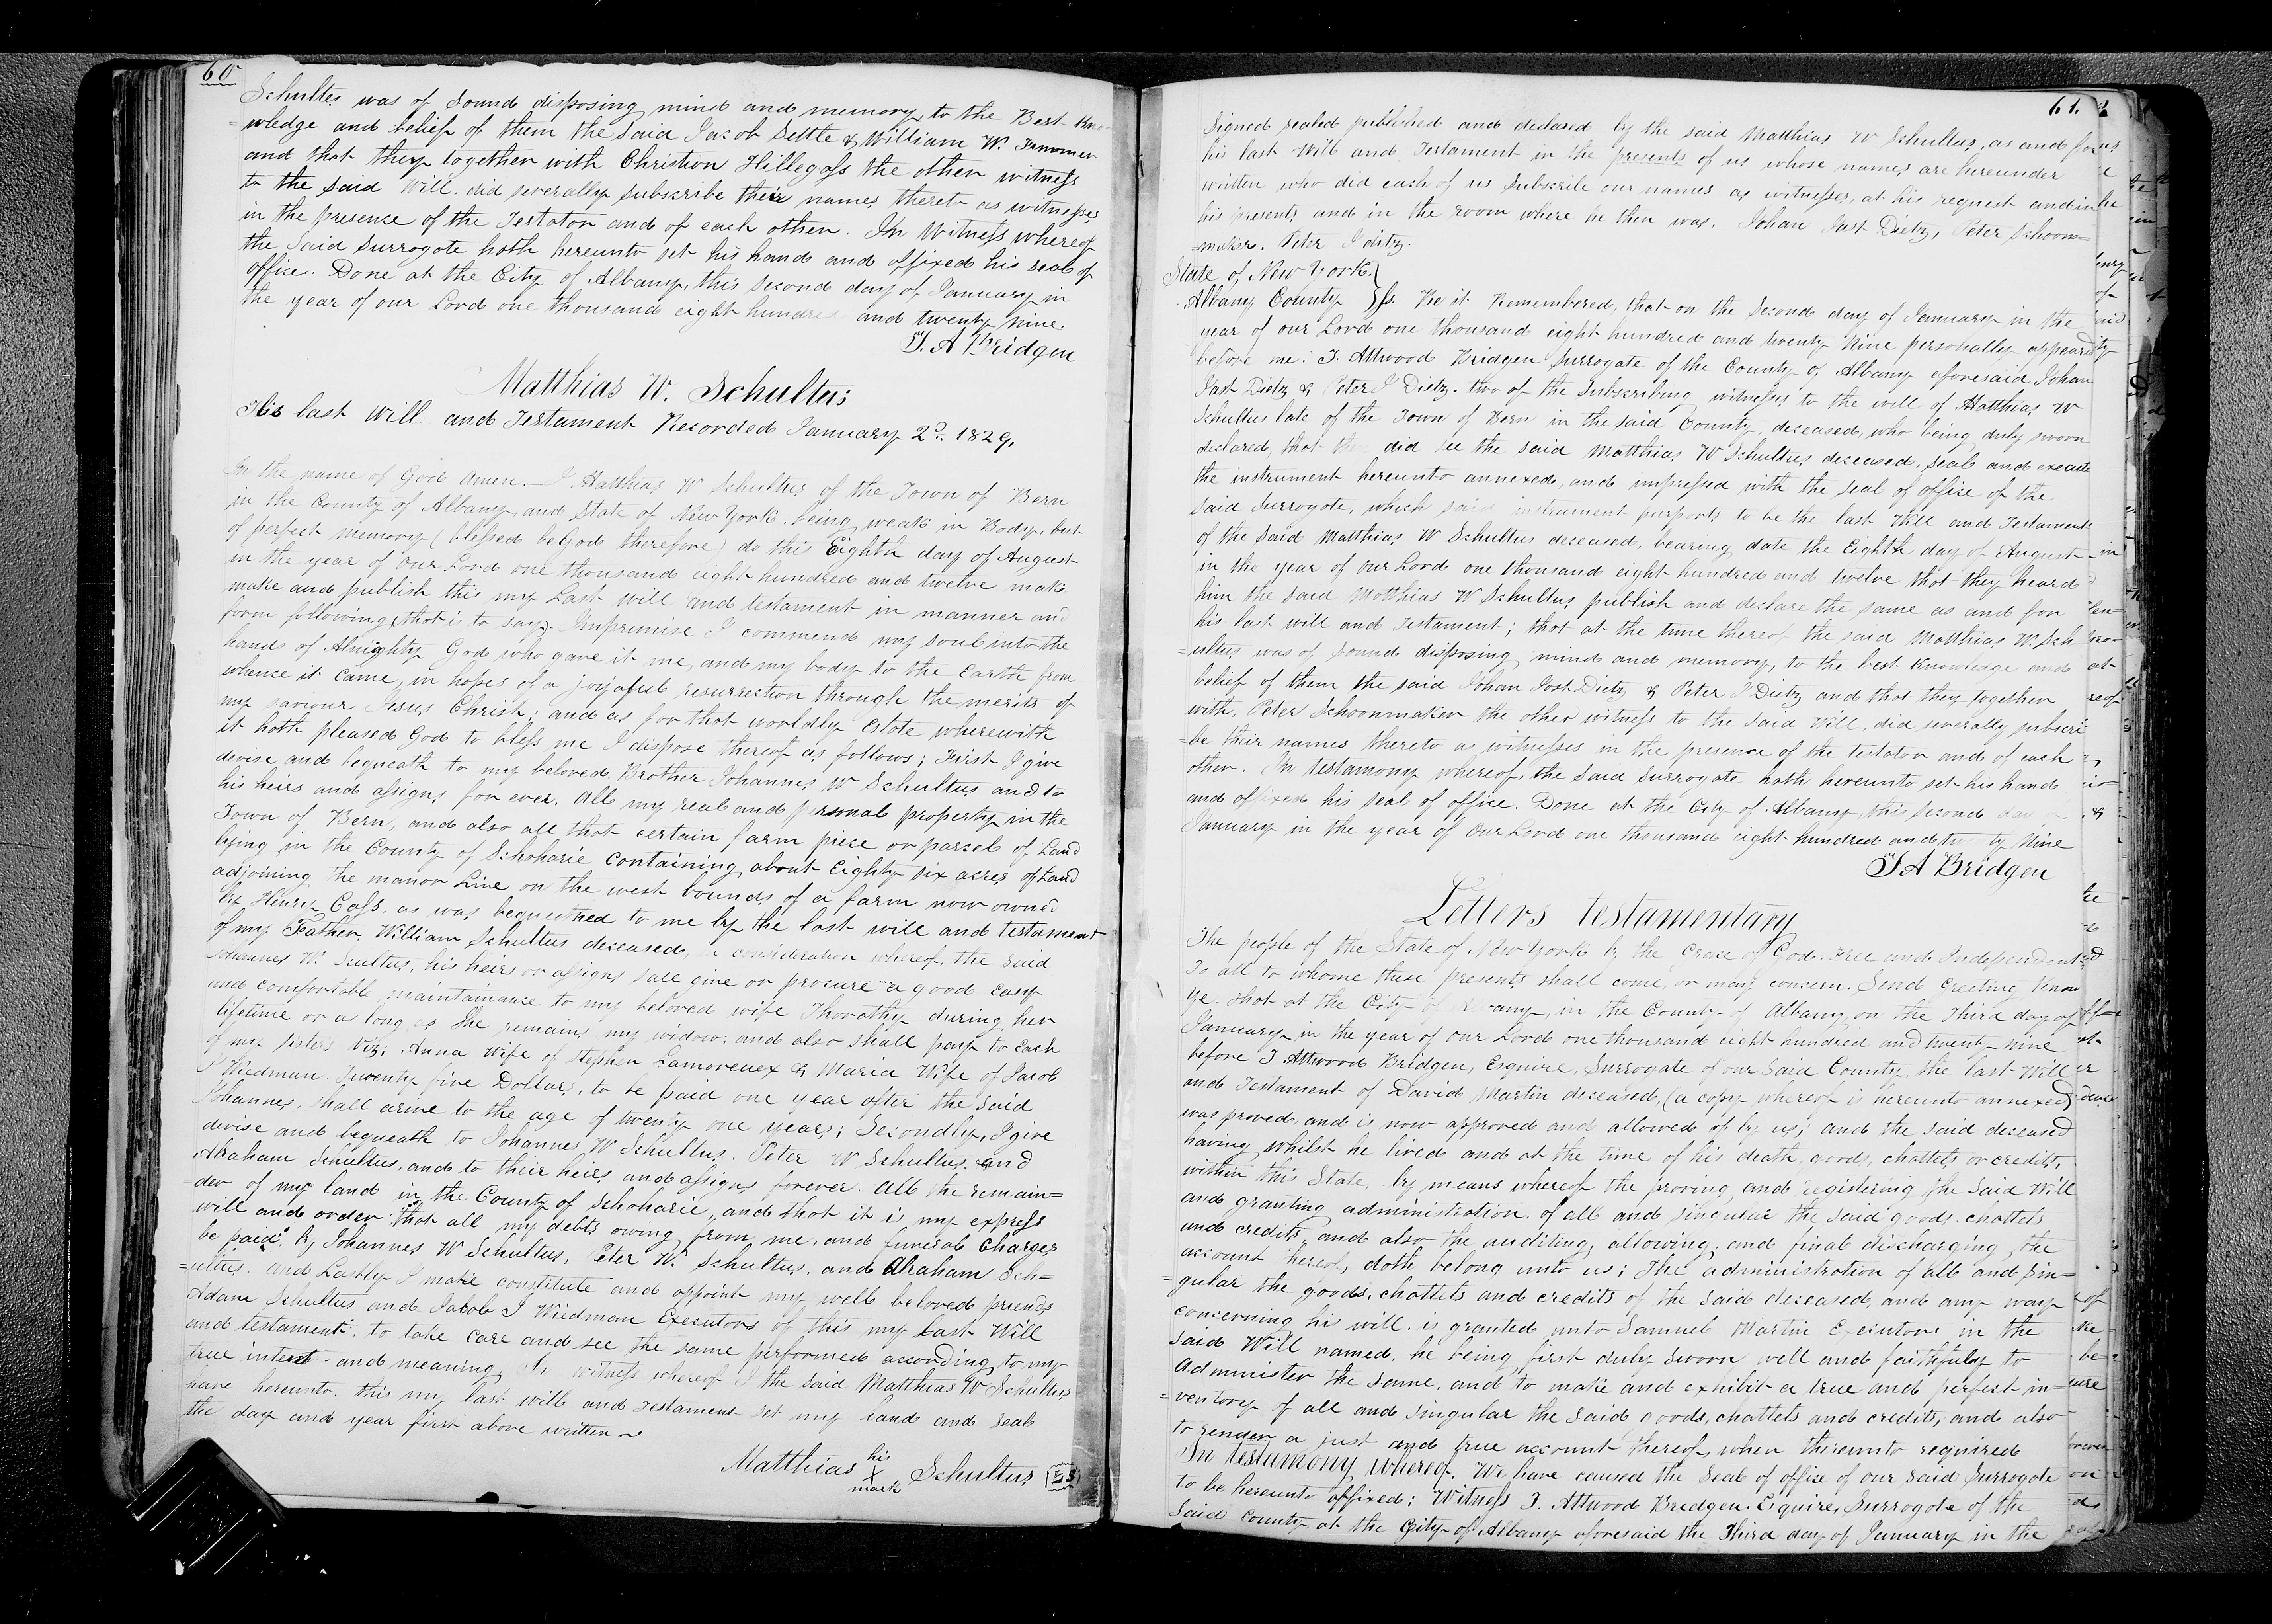 60
Schultes was of Sound disposing mind and memory, to the Best kno
=wledge and belief of them the said Jacob Settle & William W.
and that they together with Christian Hillegass the other witness
to the said Will. did severally subscribe their names thereto as witnesses
in the presence of the Testator and of each other. In Witness whereof
the said Surrogate hath hereunto set his hand and affixed his seal of
office. Done at the City of Albany, this second day of January in
the year of our Lord one thousand eight hundred and twenty nine.
T. A Bridgen
Matthias W. Schultus
His last Will and Testament Recorded January 2d. 1829.
In the name of God Amen. I Matthias W Schultus of the Town of Bern
in the County of Albany, and State of New York. being weak in Body, but
of perfect memory (blessed be God therefore) do this Eighth day of August
in the year of our Lord one thousand eight hundred and twelve make
make and publish this my Last will and testament in manner and
form following (that is to say). Imprimise I commend my soul into the
hands of Almighty God who gave it me, and my body to the Earth from
whence it came, in hopes of a joyafull resurrection through the merits of
my saviour Jesus Christ; and as for that worldly Estate wherewith
it hath pleased God to bless me I dispose thereof as follows; First I give
devise and bequeath to my beloved Brother Johannes W Schultus and to
his heirs and assigns for ever. All my real and personal property in the
Town of Bern, and also all that certain farm piece or parsel of Land
lying in the County of Schoharie containing about Eighty six acres of Land
adjoining the manor Line on the west bounds of a farm now owned
by Henry Cass. as was bequeathed to me by the last will and testament
of my Father. William Schultus deceased, in consideration whereof, the said
Johannes W. Scultus, his heirs or assigns sall give or procure a good easy
and comfortable maintainance to my beloved wife Thorathy during her
lifetime or as long as she remains my widow; and also shall pay to Each
of my sisters Viz; Anna Wife of Stephen Lamoreuex & Maria Wife of Jacob
P Wiedman. Twenty five Dollars, to be paid one year after the said
Johannes. shall arive to the age of twenty one years; Secondly, I give
devise and bequeath to Johannes W Schultus. Peter W Schultus and
Abraham Schultus. and to their heirs and assigns forever. All the remain=
der of my land in the County of Schoharie, and that it is my express
will and order that all my debts owing from me, and funeral charges
be paid by Johannes W Schultus, Peter W. Schultus. and Abraham Sch=
=ultus. and Lastly I make constitute and appoint my well beloved friends
Adam Schultus and Jacob J Wiedman Executors of this my last Will
and testament. to take care and see the same performed according to my
true intent and meaning In witness whereof I the said Matthias W Schultus
have hereunto. this my last will and testament set my hand and seal
the day and year first above written
his
Matthias X Schultus LS
mark
61.
Signed sealed published and declared by the said Matthias W Schultus, as and for
his last Will and Testament in the presents of us whose names are hereunder
written who did each of us Subscribe our names as witnesses, at his request and in
his presents and in the room where he then was. Johan Jost Dietz, Peter Schoon=
=maker. Peter J dietz.
State of New York.}
Albany County }ss. Be it Remembered, that on the Second day of January in the
year of our Lord one thousand eight hundred and twenty Nine personally appeared
before me. T. Attwood Bridgen Surrogate of the County of Albany aforesaid Johan
Jost Dietz & Peter J Dietz. two of the Subscribing witnesses to the will of Matthias W
Schultus late of the Town of Bern in the said County, deceased, who being duly sworn
declared, that they did see the said Matthias W Schultus deceased, seal and execute
the instrument hereunto annexed, and impressed with the seal of office of the
said Surrogate, which said instrument purports to be the last Will and Testament
of the said Matthias W Schultus deceased, bearing date the Eighth day of August
in the year of our Lord one thousand eight hundred and twelve that they heard
him the said Matthias W Schultus publish and declare the same as and for
his last will and Testament; that at the time thereof the said Matthias W. Sch
=ultus was of Sound disposing mind and memory, to the best knowledge and
belief of them the said Johan Jost Dietz & Peter J Dietz and that they together
with. Peter Schoonmaker the other witness to the said Will, did severally subscri
=be their names thereto as witnesses in the presence of the testator and of each
other. In testamony whereof, the said Surrogate hath hereunto set his hand
and affixed his seal of office. Done at the City of Albany, this second day of
January in the year of Our Lord one thousand eight hundred and twenty Nine
T A Bridgen
Letters testamentary
The people of the State of New York by the Grace of God. Free and Independent
To all to whome these presents shall come, or may concern. Send Greeting Know
Ye. that at the City of Albany, in the County of Albany on the Third day of
January in the year of our Lord one thousand eight hundred and twenty nine
before T Attwood Bridgen, Esquire, Surrogate of our Said County, the last Will
and Testament of David Martin deceased, (a copy whereof is hereunto annexed)
was proved, and is now approved and allowed of by us; and the said deceased
having whilst he lived and at the time of his death, goods, chattels or credits,
within this State, by means whereof the proving and registering the Said Will
and granting administration. of all and singular the said goods. chattels
and credits, and also the auditing, allowing, and final discharging the
account thereof, doth belong unto us; The administration of all and sin=
=gular the goods, chattels and credits of the said deceased, and any way
concerning his will. is granted unto Samuel Martin Executor in the
Said Will named, he being first duly sworn well and faithfuly to
Administer the Same, and to make and exhibit a true and perfect in=
=ventory of all and singular the said goods, chattels and credits, and also
to render a just and true account thereof, when thereunto required
In testamony whereof. We have caused the Seal of office of our said Surrogate
to be hereunto affixed; Witness T. Attwood Bridgen. Esquire, Surrogate of the
Said county at the City of Albany aforesaid the Third day of January in the